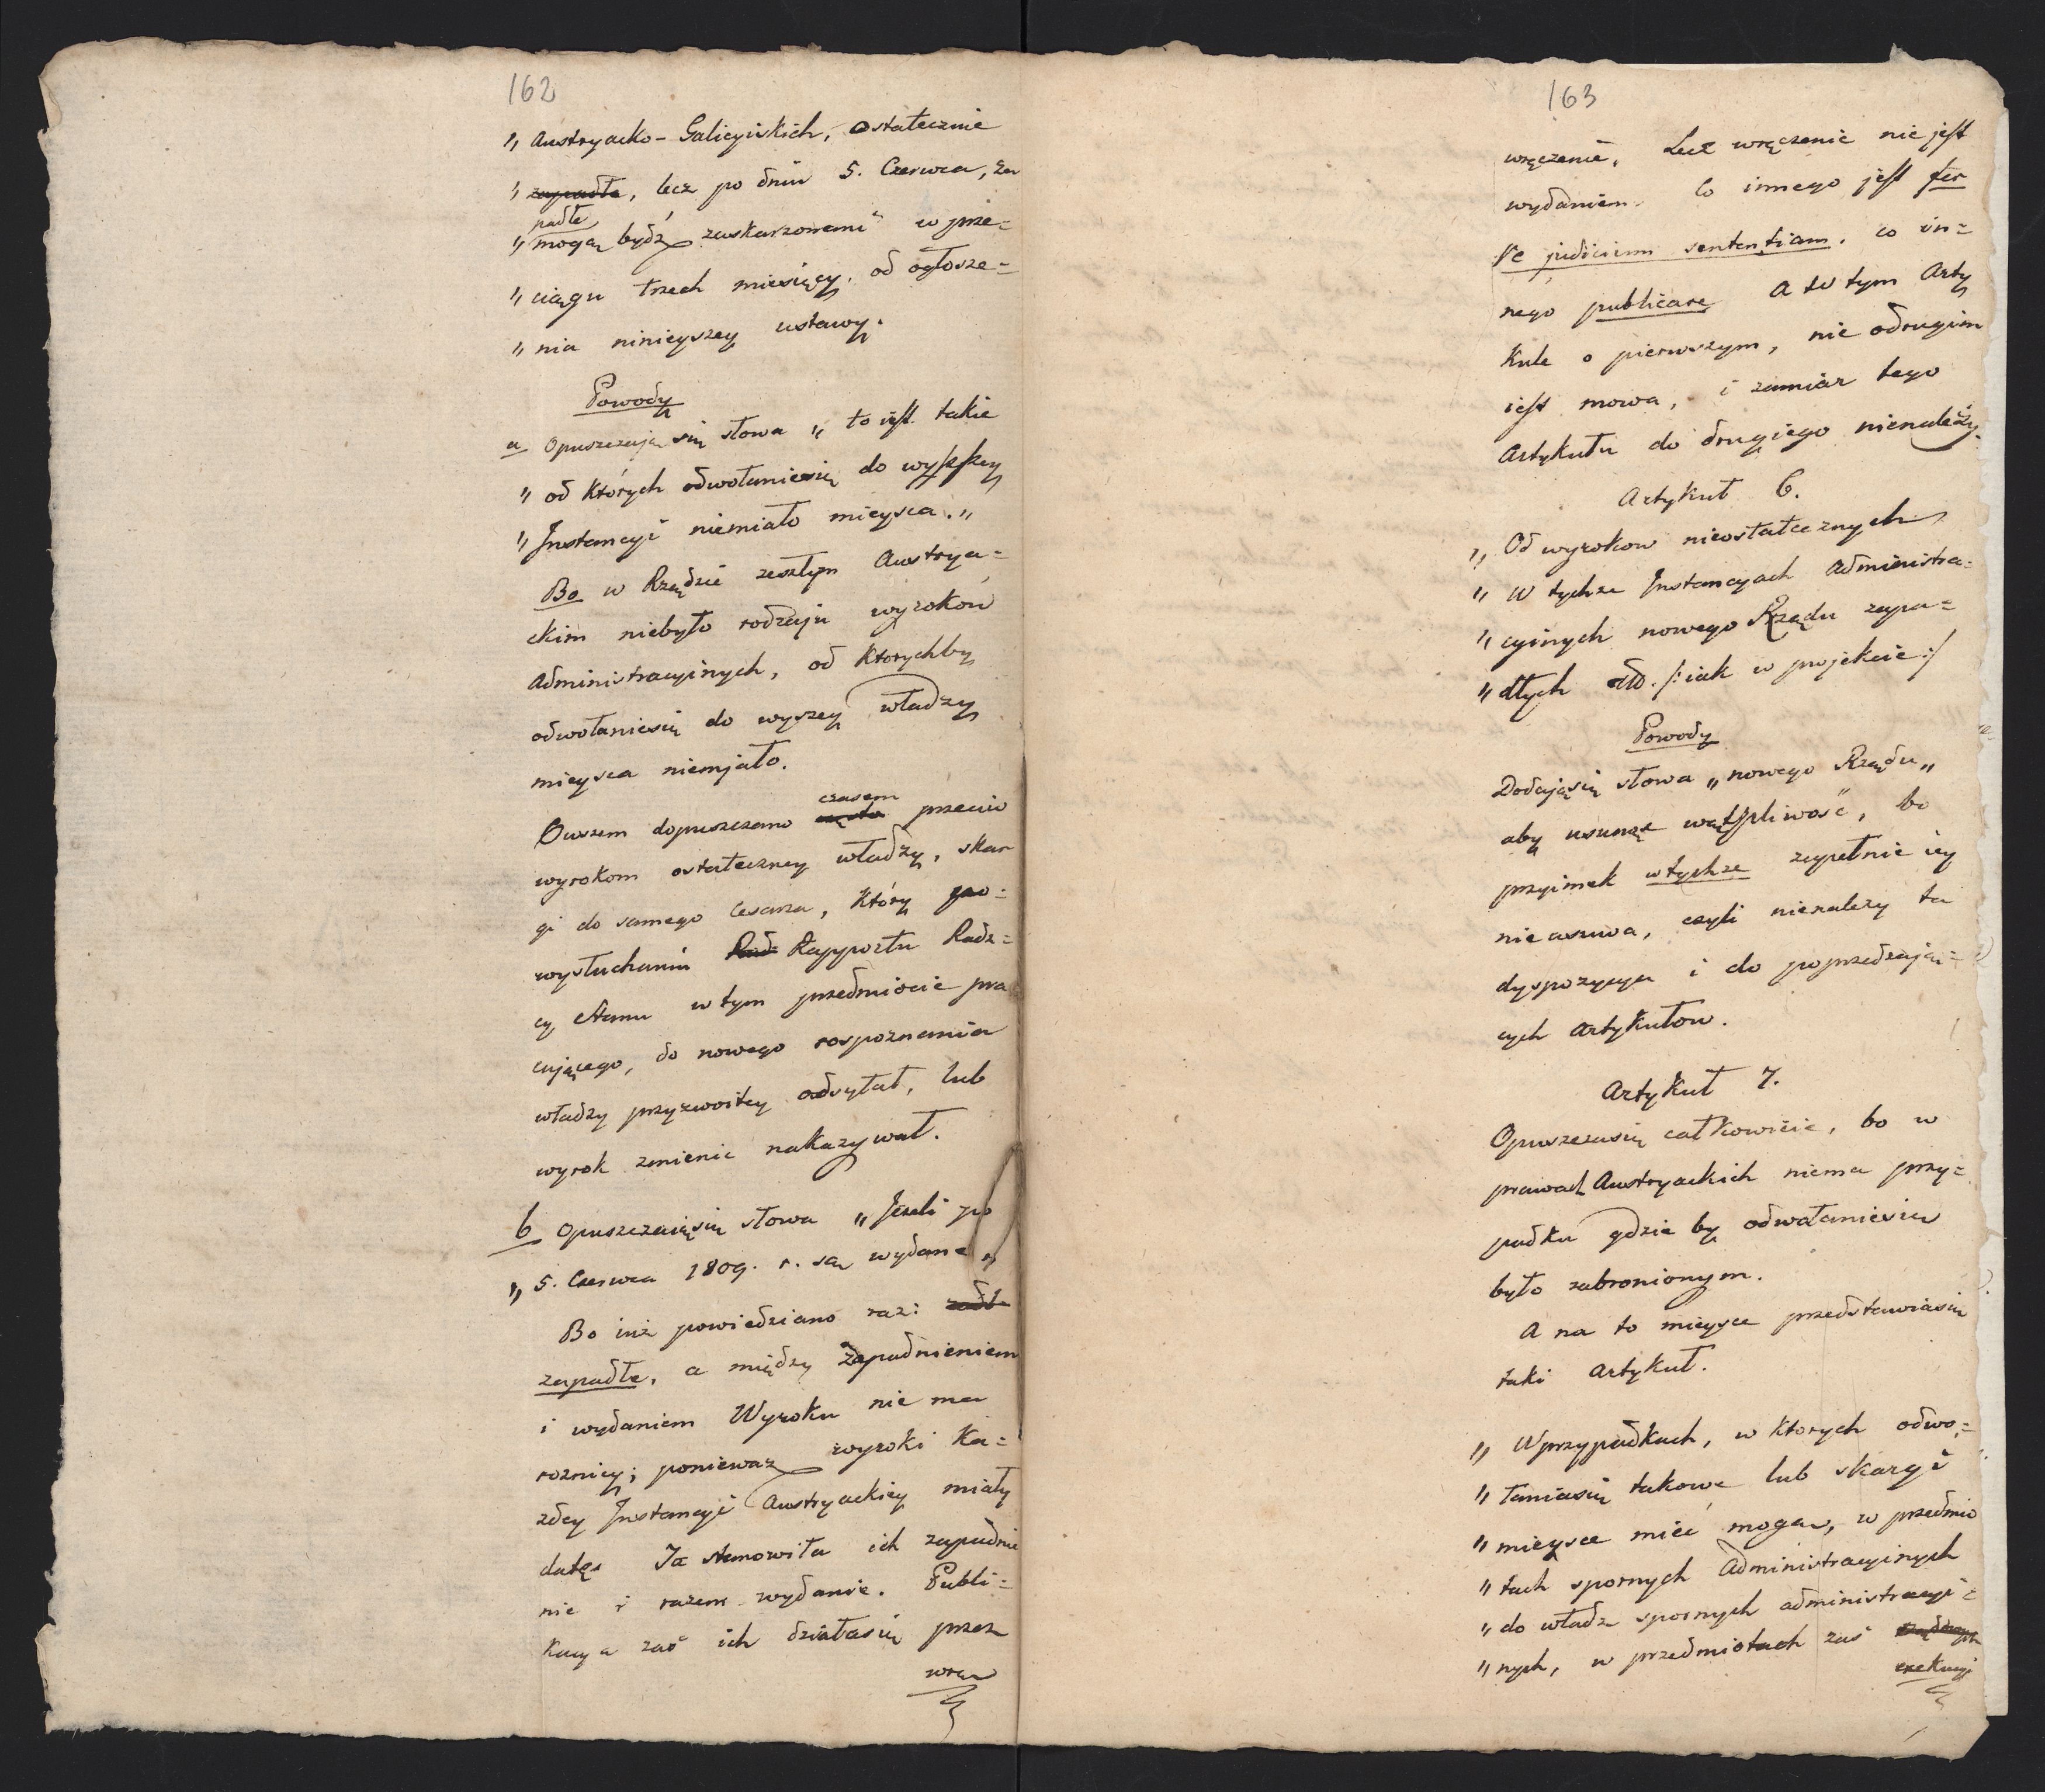 162
„ Austryacko-Galicyiskich, ostatecznie
„ zapadłe, lecz po dniu 5. Czerwca, za
padłe
„ mogą bydź zaskarzonemi w prze=
„ ciągu trzech miesięcy, od ogłosze=
„ nia ninieyszey ustawy.
Powody
a Opuszczaią się słowa „ to iest takie
„ od których odwołaniesię do wyższey
„ Instancyi niemiało mieysca.„
Bo w Rządzie zeszłym Austrya=
ckim niebyło rodzaju wyroków
Administracyinych, od ktorychby
odwołaniesię do wyszey władzy
mieysca niemjało.
Owszem dopuszczano często przeciw
czasem
wyrokom ostateczney władzy, skar
gi do samego Cesarza, który po=
wysłuchaniu Rad Rapportu Radz=
cy Stanu w tym przedmiocie pra
cującego, do nowego rospoznania
władzy przyzwoitey odsyłał, lub
wyrok zmienic nakazywał.
b Opuszczaiąsię słowa „ Jeżeli po
„ 5. Czerwca 1809. r. są wydane „
Bo iuż powiedziano raz:
zapadłe, a między Zapadnieniem
i wydaniem Wyroku nie ma
roznicy; ponieważ wyroki Ka=
zdey Instancyi Austryackiey miały
datę. Ta stanowiła ich zapadnie
nie i razem wydanie. Publi=
kacya zaś ich działasię przez
wrę
163
wręczenie, Lecz wręczenie nie jest
wydaniem. Co innego jest fer
re judicium sententiam, co in=
nego publicare A w tym Arty
kule o pierwszym, nie odrugim
iest mowa, i zamiar tego
Artykułu do drugiego nienależy.
Artykuł 6.
„ Od wyrokow nieostatecznych
„ W tychże Instancyach Administra=
„ cyinych nowego Rządu zapa=
„ dłych etd. /: iak w projekcie :/
Powody
Dodająsię słowa „ nowego Rządu „
aby usunąc wątpliwość, bo
przyimek wtychże zupełnie iey
nie usuwa, czyli nienalezy ta
dyspozycya i do poprzedzają=
cych Artykułow.
Artykuł 7.
Opuszczasię całkowicie, bo w
prawach Austryackich niema przy=
padku gdzie by odwołaniesię
było zabronionym.
A na to mieysce przedstawiasię
taki Artykuł.
„ W przypadkach, w ktorych odwo=
„ łaniasię takowe lub skargi
„ mieysce mieć mogą, w przedmio
„ tach spornych Administracyinych
„ do władz spornych administracyi=
„ nych, w przedmiotach zaś
exekucyi